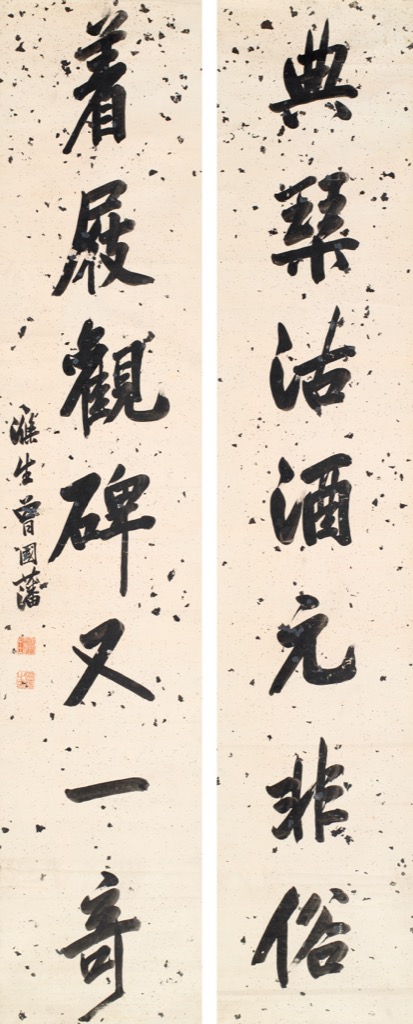 典琴沽酒元非俗
着屐觀碑又一奇
滌生曾國藩